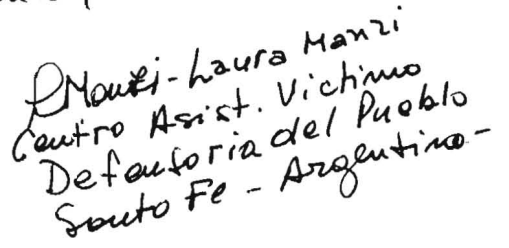 LManzi - Laura Manzi
Centro Asist. Victima
Defensoria del Pueblo
Santa Fe - Argentina -